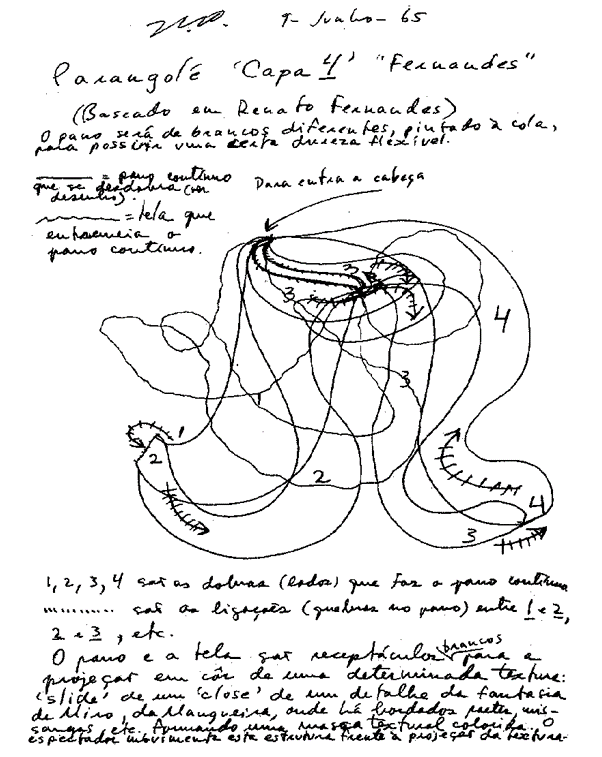 9 - Junho - 65
Parangolé 'Capa 4' "Fernandes"
(Baseado em Renato Fernandes)
O pano será de brancos diferentes, pintado à cola,
para possuir uma certa dureza flexível.
= pano contínuo
que se desdobra (ver
desenho).
= tela que
entremeia o
pano contínuo.
Para entrar a cabeça
3
3
4
3
1
1
2
2
4
3
1, 2, 3, 4 são as dobras (lados) que faz o pano contínuo
............ são as ligações (quebras no pano) entre 1 e 2,
2 e 3, etc.
O pano e a tela são receptáculos brancos para a
projeção em côr de uma determinada textura:
'slide' de um 'close' de um detalhe da fantasia
de Miro, da Mangueira, onde há bordados, mis-
sangas, etc. formando uma massa textural colorida. O
espectador movimenta esta estrutura frente à projeção da textura.